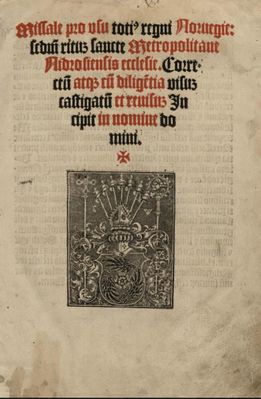 Missale pro vsu totiꝰ regni Noruegie:
sedūm ritus sancte Metropolitane
Nidrosiensis ecclesie. Corre-
ctū atqꝫ cū diligētia visus
castigatū et reuisus In
cipit in nomine do
mini.